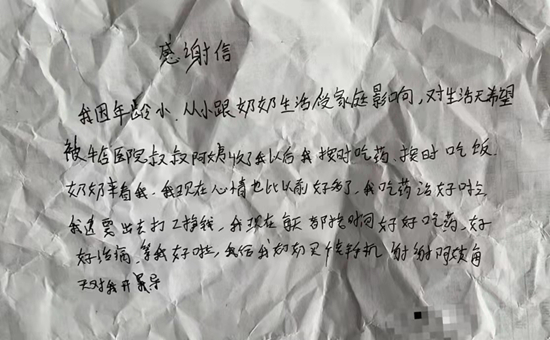 感谢信
我因年龄小.从小跟奶奶生活受家庭影响,对生活无希望
被 医院叔叔阿姨收了我以后我按时吃药.按时吃饭.
奶奶 我.我现在心情也比以前好多了,我吃药治好啦
我还要出去打工挣钱,我现在每天都按时间好好吃药.好
好治病.等我好啦,我给我奶奶买 机 谢谢阿姨
天对我开导